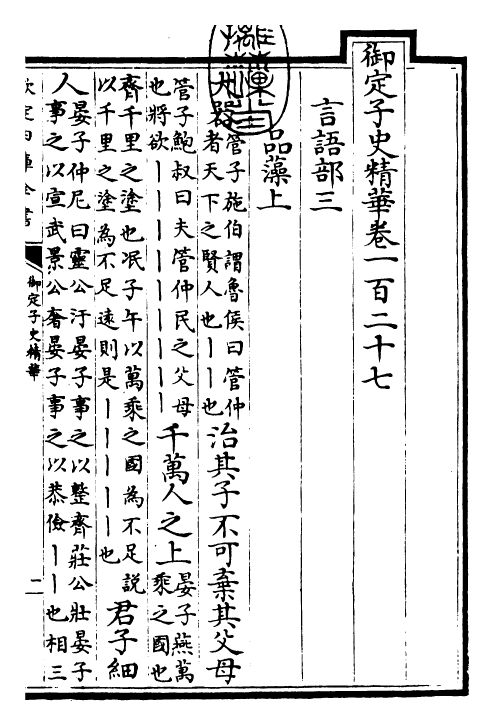 御定子史精華卷一百二十七
言語部三
品藻上
大器管子施伯謂魯侯曰管仲
者天下之賢人也丨丨也
治其子不可棄其父母
管子鮑叔曰夫管仲民之父母
也將欲丨丨丨丨丨丨丨丨丨
千萬人之上
晏子燕萬
乘之國也
齊千里之塗也泯子午以萬乘之國為不足說
以千里之塗為不足遠則是丨丨丨丨丨也
君子細
人晏子仲尼曰靈公汙晏子事之以整齊莊公壯晏子
事之以宣武景公奢晏子事之以恭儉丨丨也相三
欽定四庫全書
御定子史精華
二